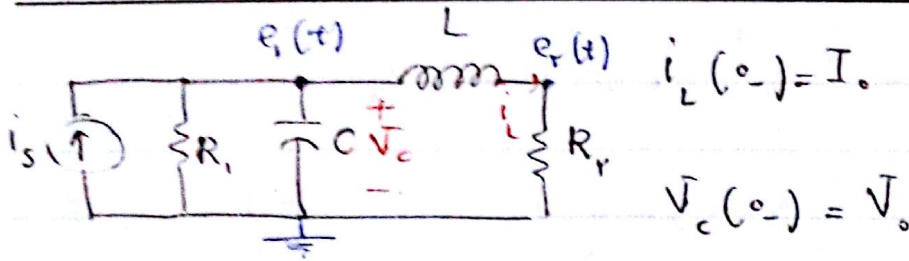 e₁(t) L e₂(t) i_L(0₋) = I₀
i_s₁ R₁ C + V_c − i_L R₂
V_c(0₋) = V₀